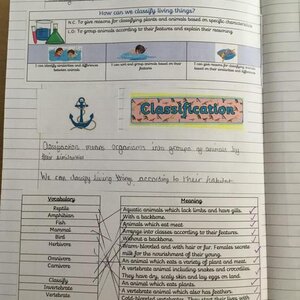 How can we classify living things?
N.C: To give reasons for classifying plants and animals based on specific characteristics
L.O: To group animals according to their features and explain their reasoning
I can identify similarities and differences between animals
I can sort and group animals based on their features
I can give reasons for classifying animals
Classification
Classification means organisms into groups of animals by
their similarities
We can classify living things according to their habitat
Vocabulary Meaning
Reptile Aquatic animals which lack limbs and have gills.
Amphibian With a backbone.
Fish Animals which eat meat.
Mammal Arrange into classes according to their features.
Bird Without a backbone.
Herbivore Warm-blooded and with hair or fur. Females secrete
milk for the nourishment of their young.
Omnivore An animal which eats a variety of plant and meat.
Carnivore A vertebrate animal including snakes and crocodiles.
They have dry, scaly skin and lay eggs on land.
Classify An animal which eats plants.
Invertebrate A vertebrate animal which also has feathers.
Vertebrate Cold-blooded vertebrates. They start their life with